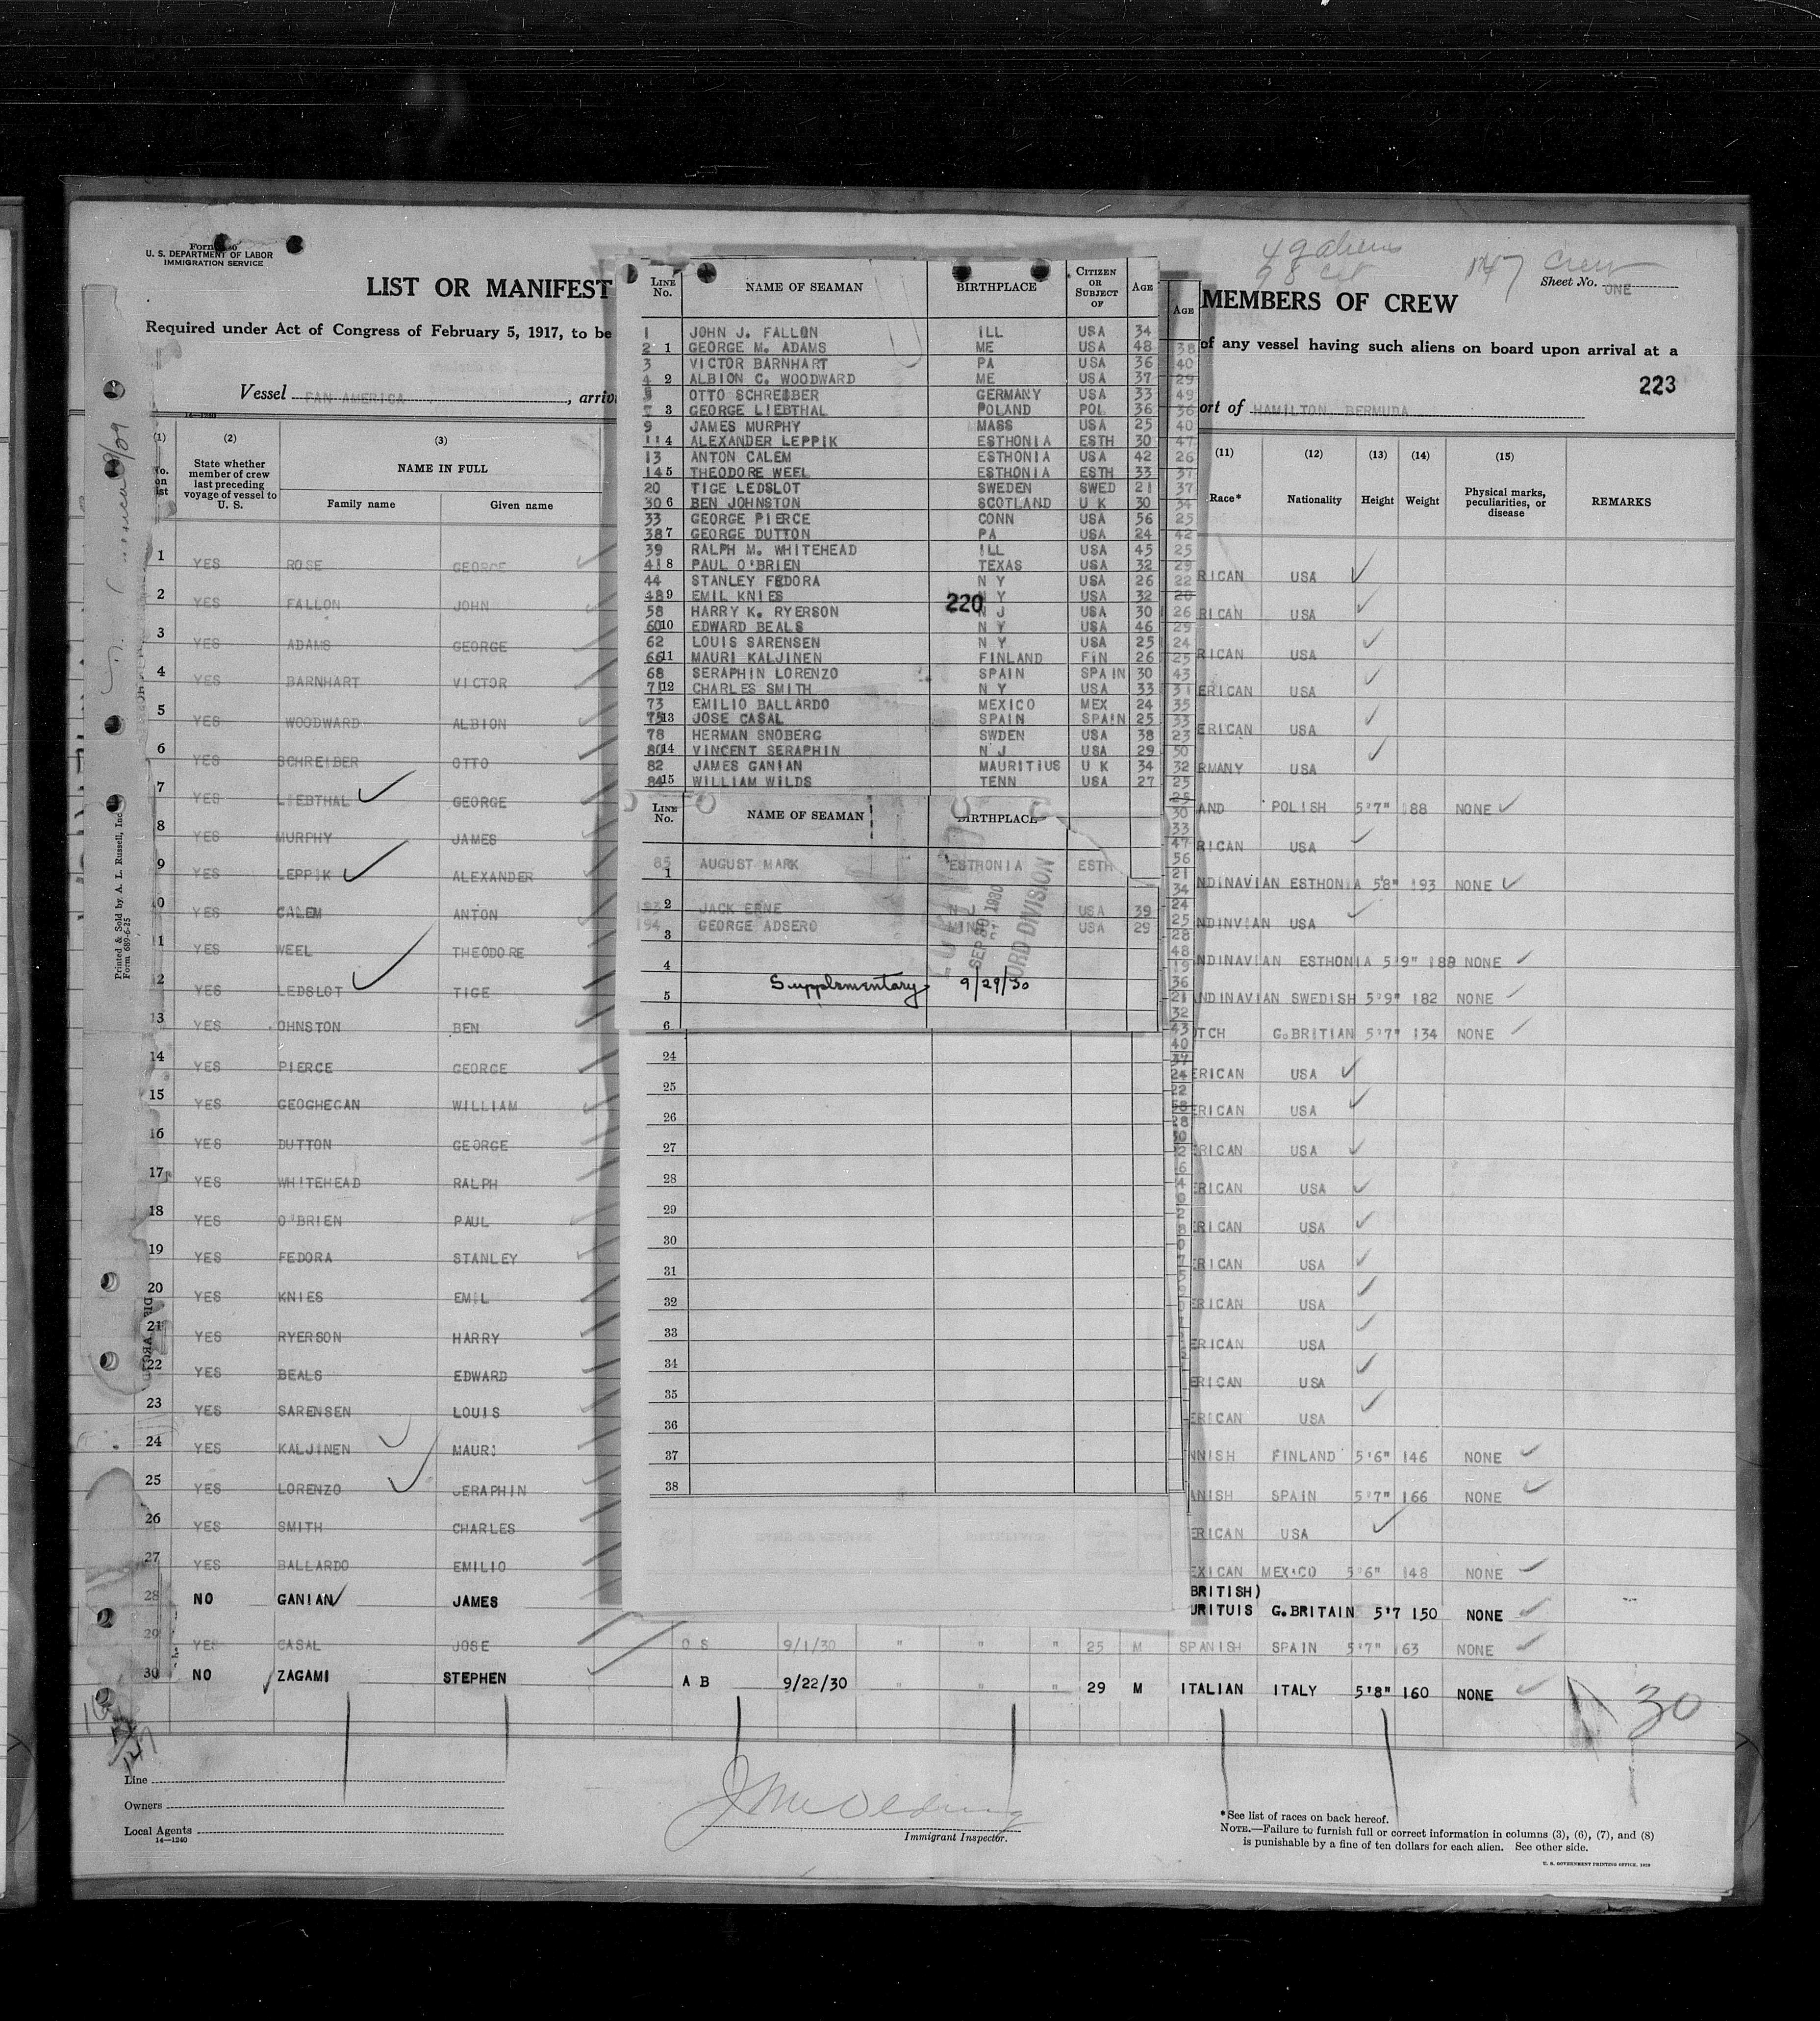 U. S. DEPARTMENT OF LABOR
IMMIGRATION SERVICE
LIST OR MANIFEST
MEMBERS OF CREW
49 aliens
147 Crew
Sheet No. ONE
Required under Act of Congress of February 5, 1917, to be
of any vessel having such aliens on board upon arrival at a
223
Vessel PAN AMERICA, arriv
ort of HAMILTON, BERMUDA
14—1240
(1) (2) (3)
No. on list
State whether member of crew last preceding voyage of vessel to U. S.
NAME IN FULL
Family name Given name
(11) (12) (13) (14) (15)
Race* Nationality Height Weight Physical marks, peculiarities, or disease REMARKS
1 YES ROSE GEORGE RICAN USA
2 YES FALLON JOHN RICAN USA
3 YES ADAMS GEORGE RICAN USA
4 YES BARNHART VICTOR ERICAN USA
5 YES WOODWARD ALBION ERICAN USA
6 YES SCHREIBER OTTO RMANY USA
7 YES LIEBTHAL GEORGE AND POLISH 5'7" 188 NONE
8 YES MURPHY JAMES RICAN USA
9 YES LEPPIK ALEXANDER NDINAVIAN ESTHONIA 5'8" 193 NONE
10 YES CALEM ANTON NDINVIAN USA
11 YES WEEL THEODORE NDINAVIAN ESTHONIA 5'9" 188 NONE
12 YES LEDSLOT TIGE ANDINAVIAN SWEDISH 5'9" 182 NONE
13 YES OHNSTON BEN OTCH G.BRITIAN 5'7" 134 NONE
14 YES PIERCE GEORGE ERICAN USA
15 YES GEOGHEGAN WILLIAM ERICAN USA
16 YES DUTTON GEORGE ERICAN USA
17 YES WHITEHEAD RALPH ERICAN USA
18 YES O'BRIEN PAUL ERICAN USA
19 YES FEDORA STANLEY ERICAN USA
20 YES KNIES EMIL ERICAN USA
21 YES RYERSON HARRY ERICAN USA
22 YES BEALS EDWARD ERICAN USA
23 YES SARENSEN LOUIS ERICAN USA
24 YES KALJINEN MAURI NNISH FINLAND 5'6" 146 NONE
25 YES LORENZO SERAPHIN ANISH SPAIN 5'7" 166 NONE
26 YES SMITH CHARLES ERICAN USA
27 YES BALLARDO EMILIO EXICAN MEXICO 5'6" 148 NONE
BRITISH)
28 NO GANIAN JAMES URITUIS G.BRITAIN 5'7 150 NONE
29 YES CASAL JOSE O S 9/1/30 " " " 25 M SPANISH SPAIN 5'7" 163 NONE
30 NO ZAGAMI STEPHEN A B 9/22/30 " " " 29 M ITALIAN ITALY 5'8" 160 NONE
30
LINE No. NAME OF SEAMAN BIRTHPLACE CITIZEN OR SUBJECT OF AGE
AGE
1 JOHN J. FALLON ILL USA 34
2 1 GEORGE M. ADAMS ME USA 48
3 VICTOR BARNHART PA USA 36
4 2 ALBION C. WOODWARD ME USA 37
OTTO SCHREIBER GERMANY USA 33
3 GEORGE LIEBTHAL POLAND POL 36
9 JAMES MURPHY MASS USA 25
11 4 ALEXANDER LEPPIK ESTHONIA ESTH 30
13 ANTON CALEM ESTHONIA USA 42
14 5 THEODORE WEEL ESTHONIA ESTH 33
20 TIGE LEDSLOT SWEDEN SWED 21
30 6 BEN JOHNSTON SCOTLAND U K 30
33 GEORGE PIERCE CONN USA 56
38 7 GEORGE DUTTON PA USA 24
39 RALPH M. WHITEHEAD ILL USA 45
41 8 PAUL O'BRIEN TEXAS USA 32
44 STANLEY FEDORA N Y USA 26
48 9 EMIL KNIES N Y USA 32
220
58 HARRY K. RYERSON N J USA 30
60 10 EDWARD BEALS N Y USA 46
62 LOUIS SARENSEN N Y USA 25
66 11 MAURI KALJINEN FINLAND FIN 26
68 SERAPHIN LORENZO SPAIN SPAIN 30
71 12 CHARLES SMITH N Y USA 33
73 EMILIO BALLARDO MEXICO MEX 24
75 13 JOSE CASAL SPAIN SPAIN 25
78 HERMAN SNOBERG SWDEN USA 38
80 14 VINCENT SERAPHIN N J USA 29
82 JAMES GANIAN MAURITIUS U K 34
84 15 WILLIAM WILDS TENN USA 27
LINE No. NAME OF SEAMAN BIRTHPLACE
85 1 AUGUST MARK ESTHONIA ESTH
2 JACK ERNE N J USA 39
194 3 GEORGE ADSERO MINN USA 29
SEP 30 1930
ORD DIVISION
4
Supplementary 9/29/30
5
6
24
25
26
27
28
29
30
31
32
33
34
35
36
37
38
Printed & Sold by A. L. Russell, Inc.
Form 689-6-25
Line
Owners
Local Agents
14—1240
Immigrant Inspector.
*See list of races on back hereof.
NOTE.—Failure to furnish full or correct information in columns (3), (6), (7), and (8)
is punishable by a fine of ten dollars for each alien. See other side.
U. S. GOVERNMENT PRINTING OFFICE, 1929